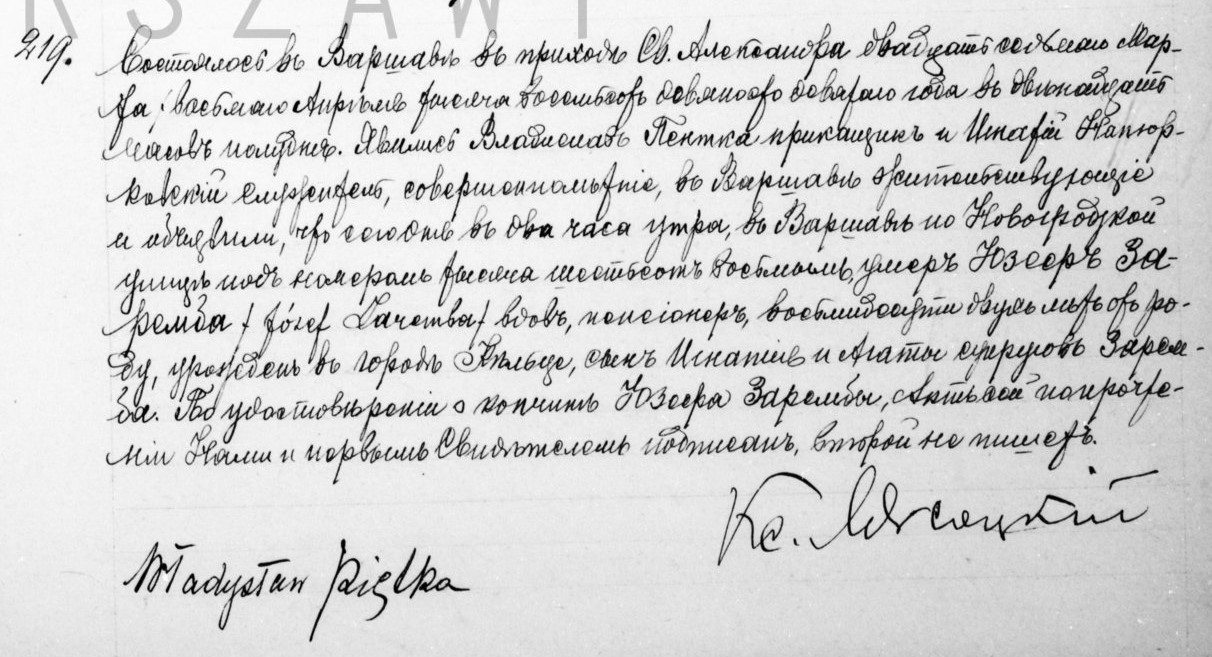 RSZAWY
219.
Состоялось въ Варшавѣ въ приходѣ Св. Александра двадцать седьмаго Мар-
та / восьмаго Апрѣля тысяча восемьсотъ девяносто девятаго года въ двѣнадцать
часовъ полудня. Явились Владиславъ Пентка прикащикъ и Игнатій
служитель, совершеннолѣтніе, въ Варшавѣ жительствующіе
и объявили, что сего дня въ два часа утра, въ Варшавѣ по Новогродзкой
улицѣ подъ номеромъ тысяча шестьсотъ восьмымъ, умеръ Юзефъ За-
ремба / Józef / вдовъ, пенсіонеръ, восьмидесяти двухъ лѣтъ отъ ро-
ду, урожденъ въ городѣ Кѣльце, сынъ Игнатія и Агаты супруговъ Зарем-
ба. По удостовѣреніи о кончинѣ Юзефа Зарембы, Актъ сей по прочте-
ніи Нами и первымъ Свидѣтелемъ подписанъ, второй не пишетъ.
Кс.
Władysław Piętka